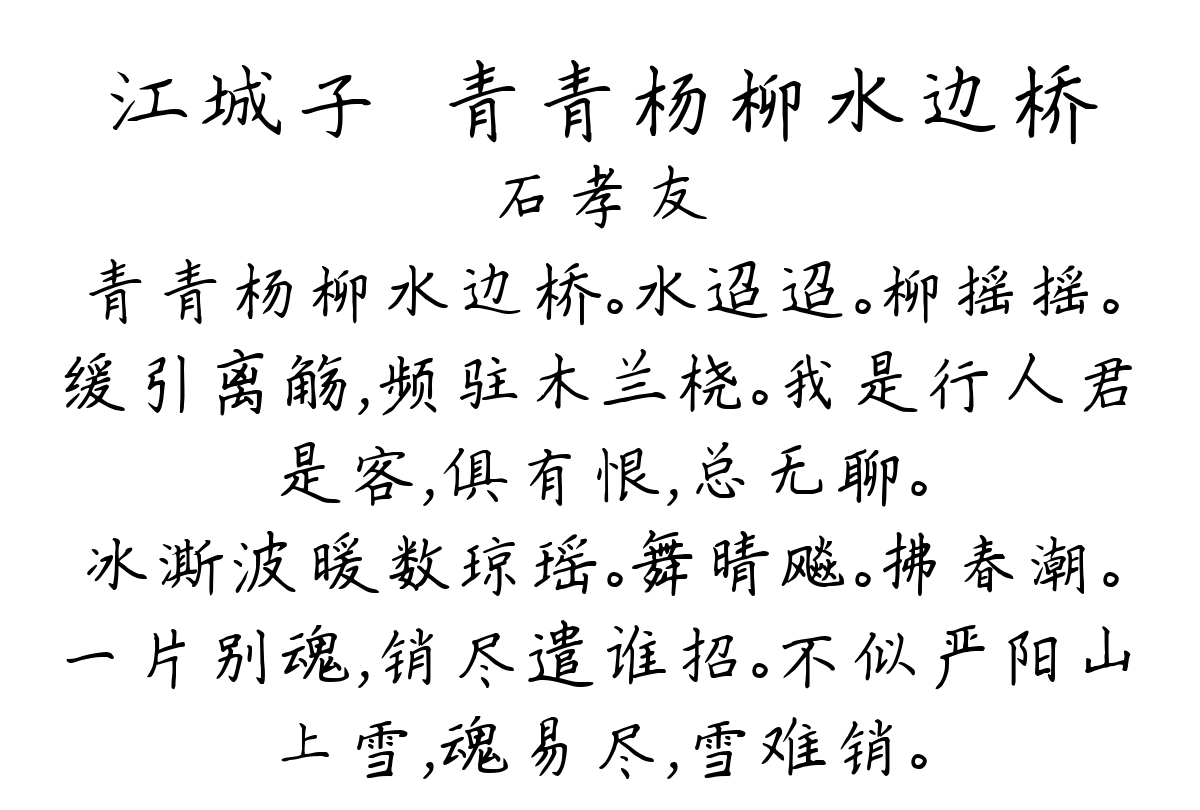 江城子 青青杨柳水边桥
石孝友
青青杨柳水边桥。水迢迢。柳摇摇。
缓引离觞,频驻木兰桡。我是行人君
是客,俱有恨,总无聊。
冰澌波暖数琼瑶。舞晴飚。拂春潮。
一片别魂,销尽遣谁招。不似严阳山
上雪,魂易尽,雪难销。